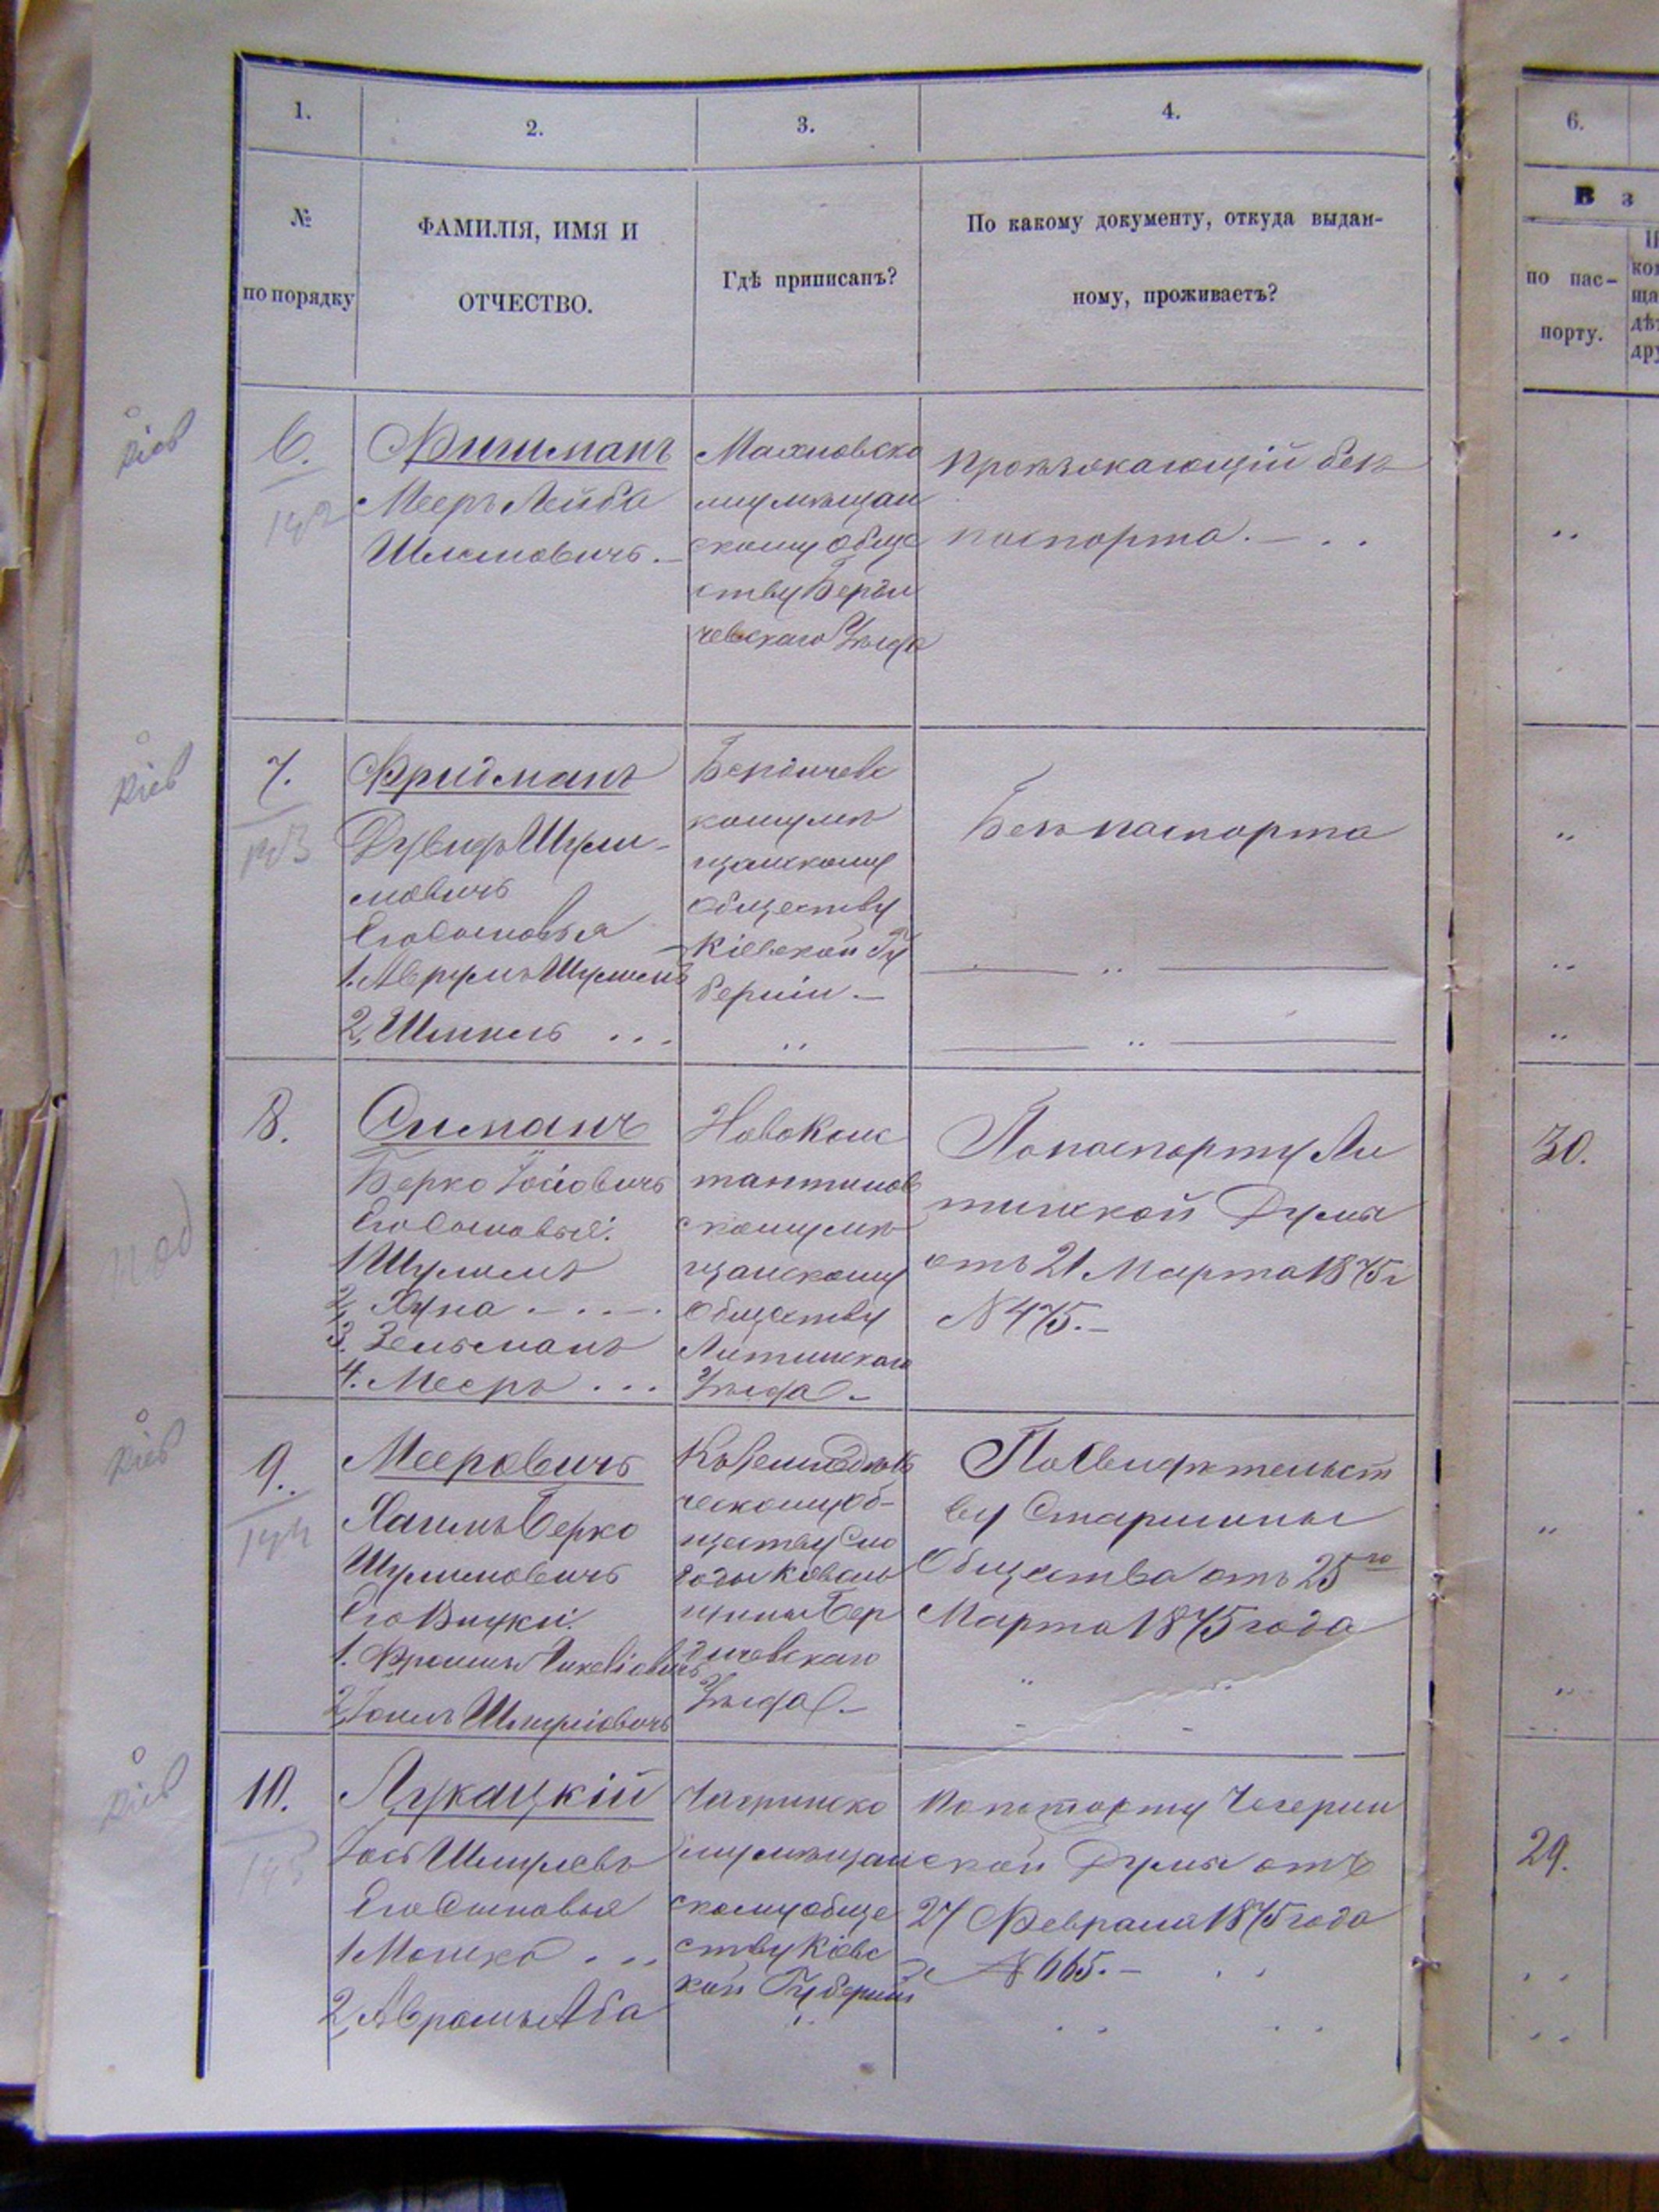 1.
2.
3.
4.
6.
№
по порядку
ФАМИЛІЯ, ИМЯ И
ОТЧЕСТВО.
Гдѣ приписанъ?
По какому документу, откуда выдан-
ному, проживаетъ?
В з
по пас-
порту.
6.
142
Фишманъ
Мееръ Лейба
Шлемовичъ.
Махновско
му мѣщан
скому обще
ству Берди
чевскаго Уѣзда
Проѣзжающій безъ
паспорта.
7.
143
Фридманъ
Дувидъ Шули-
мовичъ
Его Сыновья
1. Аврумъ Шулимъ
2. Шмиль
Бердичевс
кому мѣ
щанскому
обществу
Кіевской Гу
берніи.
Безъ паспорта
8.
Симанъ
Берко Іосіовичъ
Его Сыновья:
1 Шулимъ
2. Хуна
3. Зельманъ
4. Мееръ
Новоконс
тантинов
скому мѣ
щанскому
Обществу
Литинскаго
Уѣзда
По паспорту Ли
тинской Думы
отъ 21 Марта 1875 г
N 475.
30.
9.
144
Мееровичъ
Хаимъ Берко
Шулимовичъ
Его Внуки:
1.
2,
ческому Об-
ществу Сло
боды Коваль
щины Бер
дичевскаго
Уѣзда
По Свидѣтельст
ву Старшины
Общества отъ 25го
Марта 1875 года
10.
145
Лукацкій
Іось Шмулевъ
Его Сыновья
1 Мошко
2, Аврамъ Аба
Чигринско
му мѣщан
скому обще
ству Кіевс
кой Губерніи
По паспорту Чегерин
ской Думы отъ
27 Февраля 1875 года
за N 665.
29.